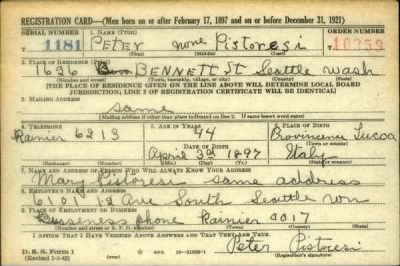 REGISTRATION CARD—(Men born on or after February 17, 1897 and on or before December 31, 1921)
SERIAL NUMBER 1. NAME (Print) ORDER NUMBER
1181 PETER none Pistoresi 10259
(First) (Middle) (Last)
2. PLACE OF RESIDENCE (Print)
1636 BENNETT St Seattle Wash
(Number and street) (Town, township, village, or city) (County) (State)
[THE PLACE OF RESIDENCE GIVEN ON THE LINE ABOVE WILL DETERMINE LOCAL BOARD
JURISDICTION; LINE 2 OF REGISTRATION CERTIFICATE WILL BE IDENTICAL]
3. MAILING ADDRESS
same
[Mailing address if other than place indicated on line 2. If same insert word same]
4. TELEPHONE 5. AGE IN YEARS 6. PLACE OF BIRTH
Rainier 6213 44 Provincence Lucca
DATE OF BIRTH (Town or county)
April 3rd 1897 Italy
(Exchange) (Number) (Mo.) (Day) (Yr.) (State or country)
7. NAME AND ADDRESS OF PERSON WHO WILL ALWAYS KNOW YOUR ADDRESS
Mary Pistoresi same address
8. EMPLOYER'S NAME AND ADDRESS
6101 Ave South Seattle Wn
9. PLACE OF EMPLOYMENT OR BUSINESS
Busseness phone Rainier 0017
(Number and street or R. F. D. number) (Town) (County) (State)
I AFFIRM THAT I HAVE VERIFIED ABOVE ANSWERS AND THAT THEY ARE TRUE.
D. S. S. Form 1 Peter Pistoresi
(Revised 1-1-42) (over) 16—21630-1 (Registrant's signature)